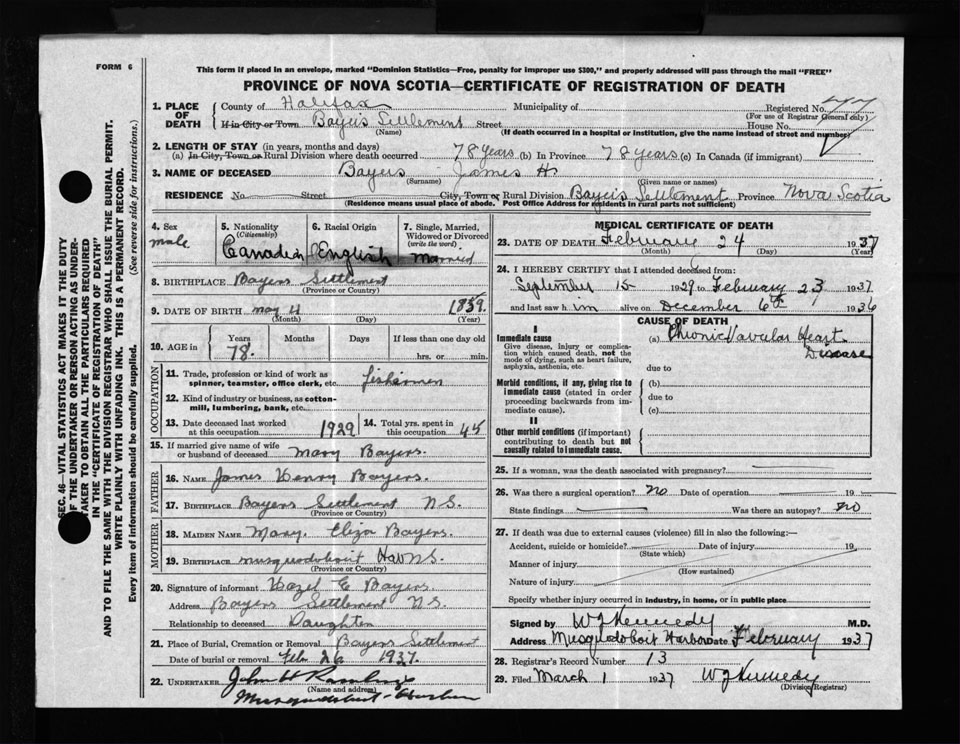 FORM 6
This form if placed in an envelope, marked "Dominion Statistics—Free, penalty for improper use $300," and properly addressed will pass through the mail "FREE"
PROVINCE OF NOVA SCOTIA—CERTIFICATE OF REGISTRATION OF DEATH
SEC. 46—VITAL STATISTICS ACT MAKES IT THE DUTY
OF THE UNDERTAKER OR PERSON ACTING AS UNDER-
TAKER TO OBTAIN ALL THE PARTICULARS REQUIRED
IN THE "CERTIFICATE OF REGISTRATION OF DEATH"
AND TO FILE THE SAME WITH THE DIVISION REGISTRAR WHO SHALL ISSUE THE BURIAL PERMIT.
WRITE PLAINLY WITH UNFADING INK. THIS IS A PERMANENT RECORD.
Every item of information should be carefully supplied. (See reverse side for instructions.)
1. PLACE OF DEATH County of Halifax Municipality of Registered No.
(For use of Registrar General only)
If in City or Town Bayers Settlement Street House No.
(Name) (If death occurred in a hospital or institution, give the name instead of street and number)
2. LENGTH OF STAY (in years, months and days)
(a) In City, Town or Rural Division where death occurred 78 years (b) In Province 78 years (c) In Canada (if immigrant)
3. NAME OF DECEASED Bayers James H.
(Surname) (Given name or names)
RESIDENCE No. Street City, Town or Rural Division Bayers Settlement Province Nova Scotia
(Residence means usual place of abode. Post Office Address for residents in rural parts not sufficient)
4. Sex male
5. Nationality (Citizenship) Canadian
6. Racial Origin English
7. Single, Married, Widowed or Divorced (write the word) Married
8. BIRTHPLACE Bayers Settlement
(Province or Country)
9. DATE OF BIRTH may 4 1859.
(Month) (Day) (Year)
10. AGE in Years 78. Months Days If less than one day old
hrs. or min.
OCCUPATION
11. Trade, profession or kind of work as
spinner, teamster, office clerk, etc. fishermen
12. Kind of industry or business, as cotton-
mill, lumbering, bank, etc.
13. Date deceased last worked at this occupation 1929
14. Total yrs. spent in this occupation 45
15. If married give name of wife
or husband of deceased Mary Bayers.
FATHER
16. NAME James Henry Bayers.
17. BIRTHPLACE Bayers Settlement N.S.
(Province or Country)
MOTHER
18. MAIDEN NAME Mary. Eliza Bayers.
19. BIRTHPLACE musquodoboit Har N.S.
(Province or Country)
20. Signature of informant Hazel E Bayers
Address Bayers Settlement N.S.
Relationship to deceased Daughter
21. Place of Burial, Cremation or Removal Bayers Settlement
Date of burial or removal Feb. 26 1937.
22. UNDERTAKER John H
(Name and address)
Musquodoboit Harbor
MEDICAL CERTIFICATE OF DEATH
23. DATE OF DEATH February 24 1937
(Month) (Day) (Year)
24. I HEREBY CERTIFY that I attended deceased from:
September 15 1929 to February 23 1937
and last saw h im alive on December 6th 1936
CAUSE OF DEATH
I
Immediate cause
Give disease, injury or complica-
tion which caused death, not the
mode of dying, such as heart failure,
asphyxia, asthenia, etc.
(a) Chronic Valvular Heart
Disease
due to
Morbid conditions, if any, giving rise to
immediate cause (stated in order
proceeding backwards from im-
mediate cause).
(b)
due to
(c)
II
Other morbid conditions (if important)
contributing to death but not
causally related to immediate cause.
25. If a woman, was the death associated with pregnancy?
26. Was there a surgical operation? No Date of operation 19
State findings Was there an autopsy? No
27. If death was due to external causes (violence) fill in also the following:—
Accident, suicide or homicide? Date of injury 19
(State which)
Manner of injury
(How sustained)
Nature of injury
Specify whether injury occurred in industry, in home, or in public place
Signed by W J Kennedy M.D.
Address Musquodoboit Harbor Date February 1937
28. Registrar's Record Number 13
29. Filed March 1 1937 W J Kennedy
(Division Registrar)